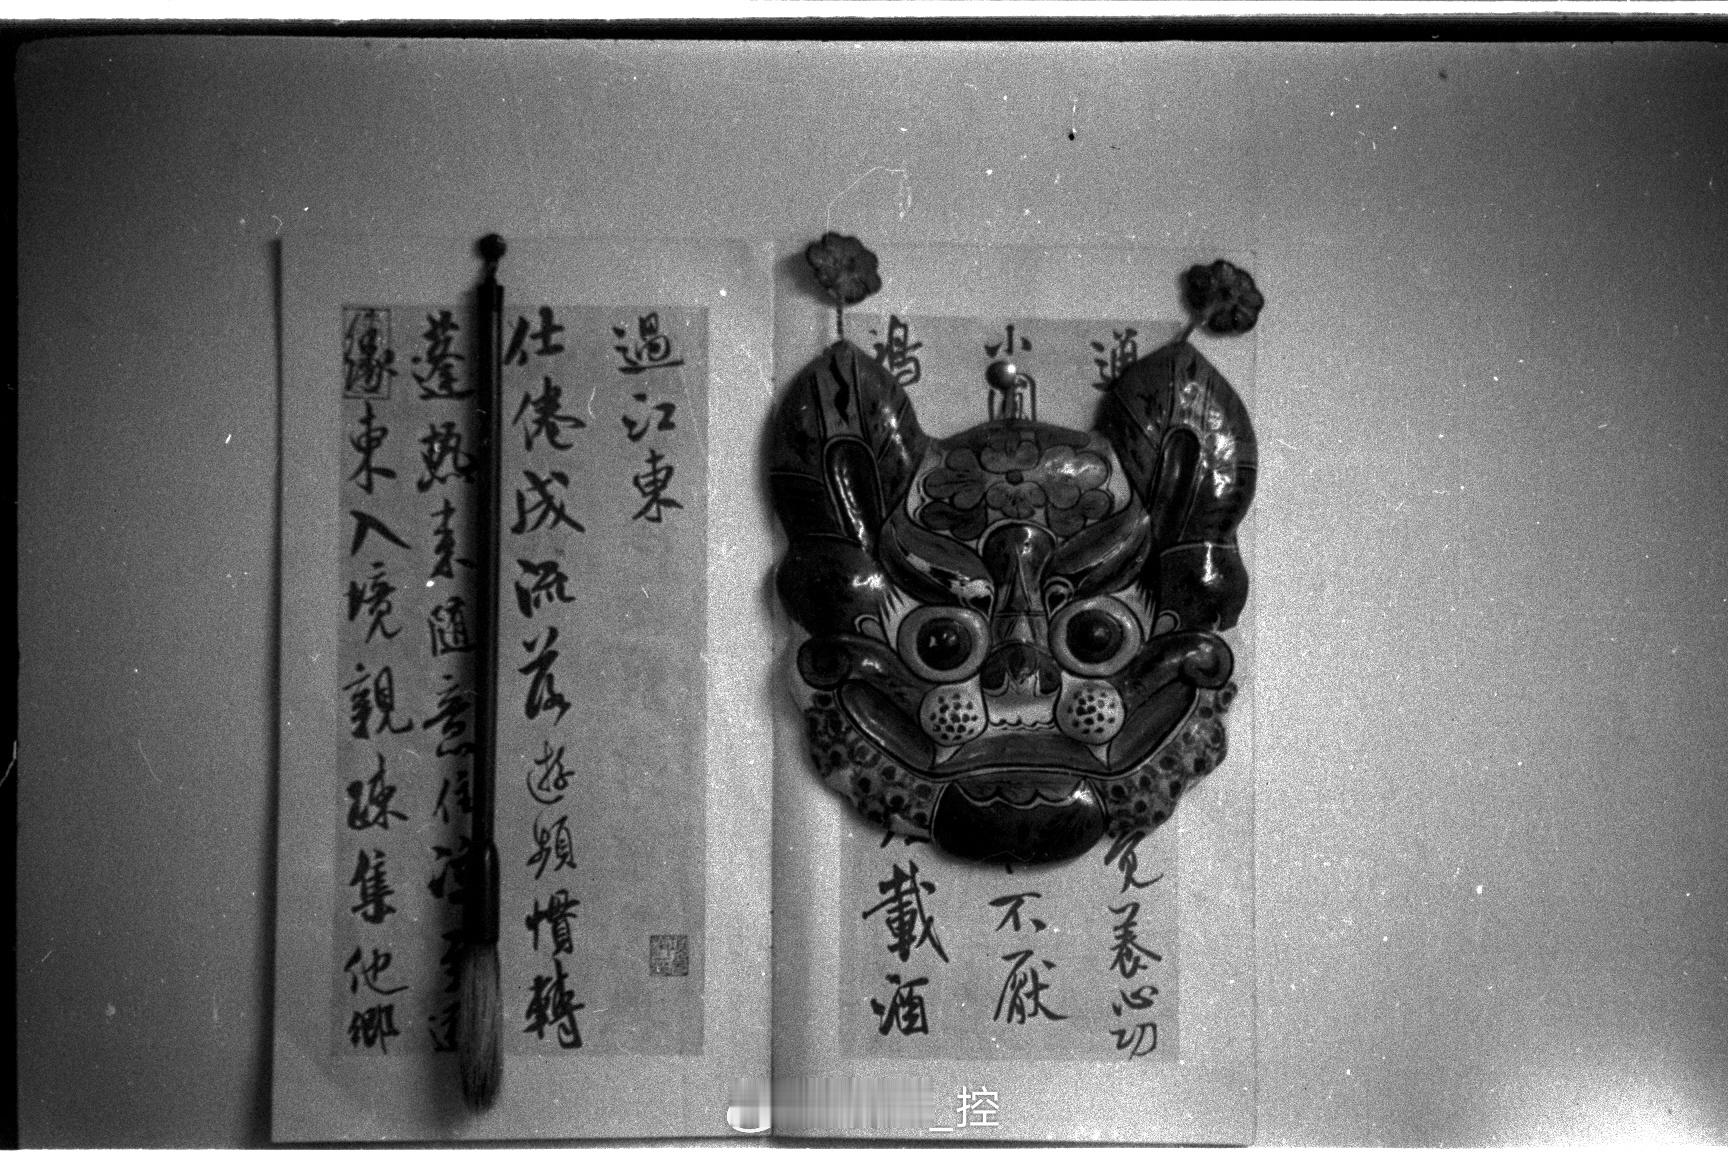 通覓養心功
小不厭
鴻載酒
過江東
仕倦成流落遊頻慣轉
蓬熱来隨意住涼
緣東入境親疎集他鄉
_控